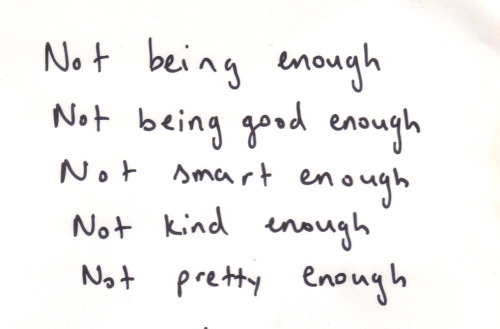 Not being enough
Not being good enough
Not smart enough
Not kind enough
Not pretty enough